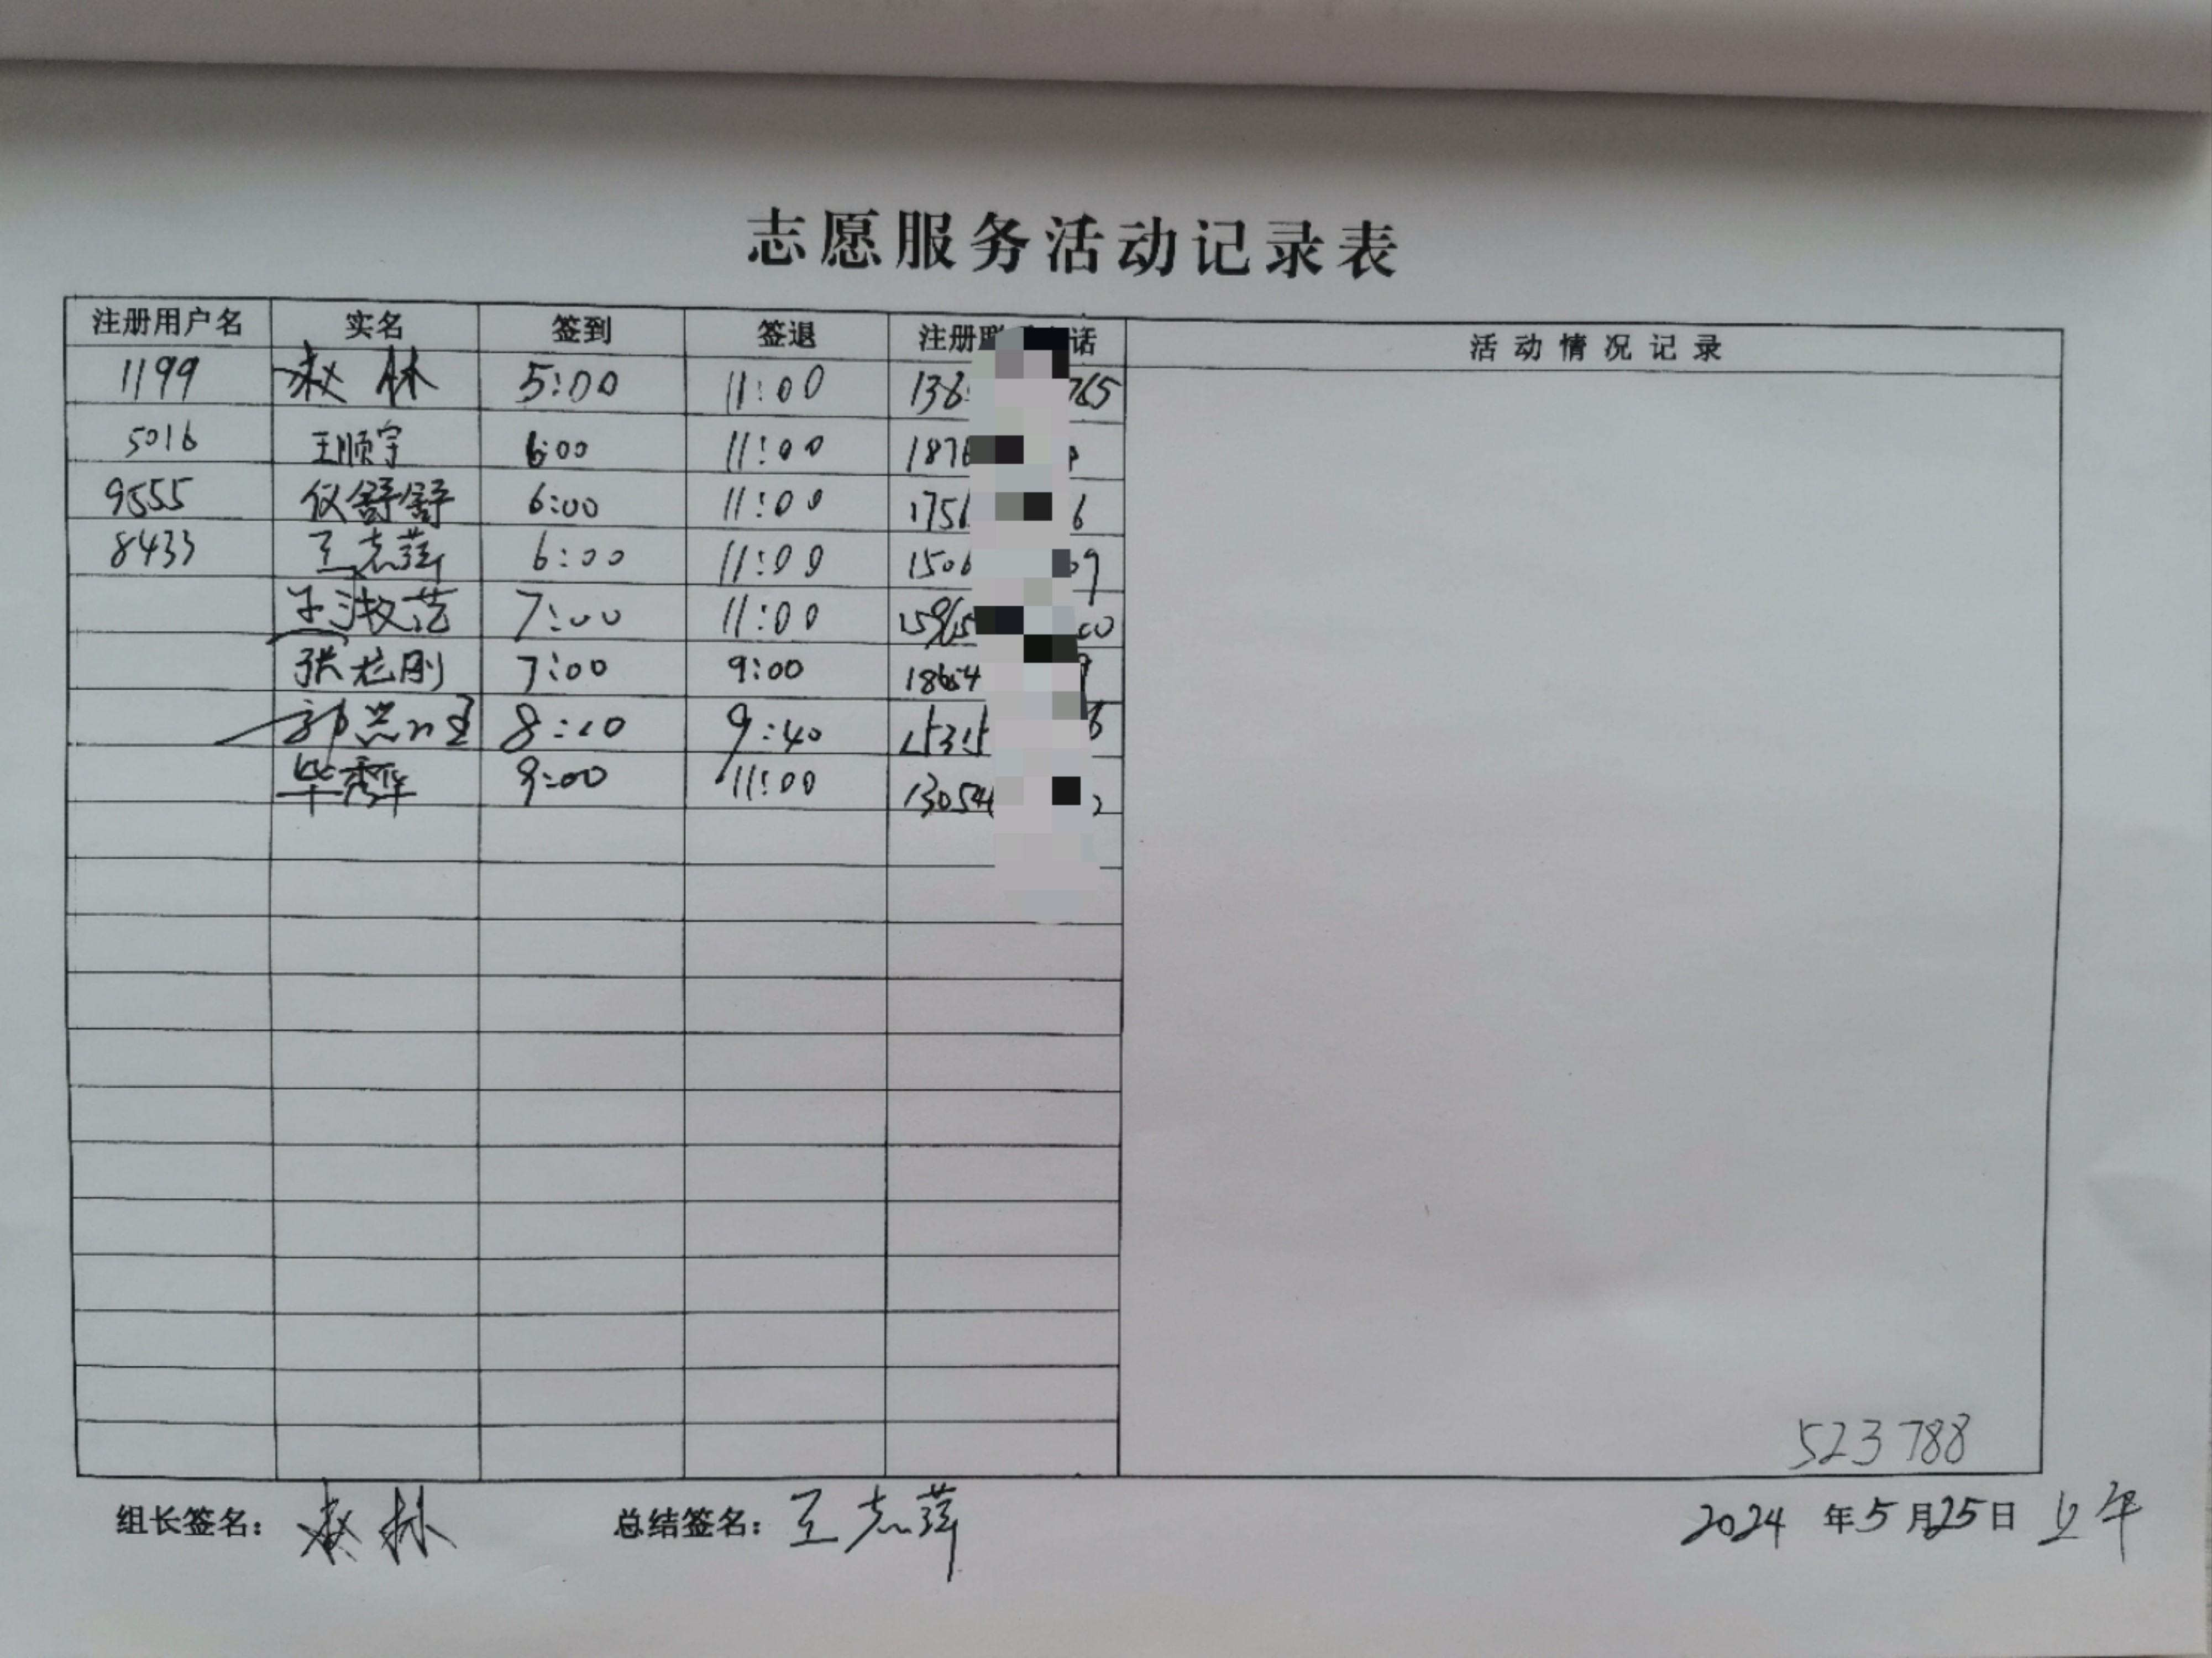 志愿服务活动记录表
注册用户名 实名 签到 签退 注册 话 活动情况记录
1199 赵林 5:00 11:00 138 765
5016 王顺宇 6:00 11:00 187
9555 仪舒舒 6:00 11:00 1756 6
8433 王志萍 6:00 11:00 1506 09
7:00 11:00 15965 00
张龙刚 7:00 9:00 18654 9
郭 8:20 9:40 15315 6
毕秀华 9:00 11:00 13054 2
523788
组长签名: 赵林 总结签名: 王志萍 2024 年5月25日 上午